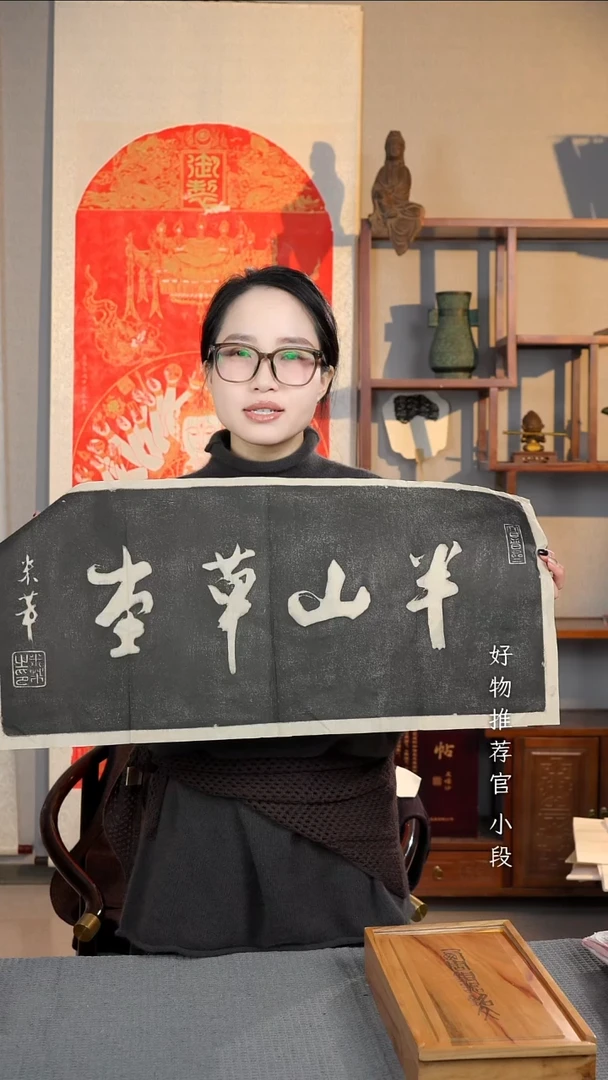 御製
半山草堂
米芾
米芾之印
帖
好物推荐官 小段